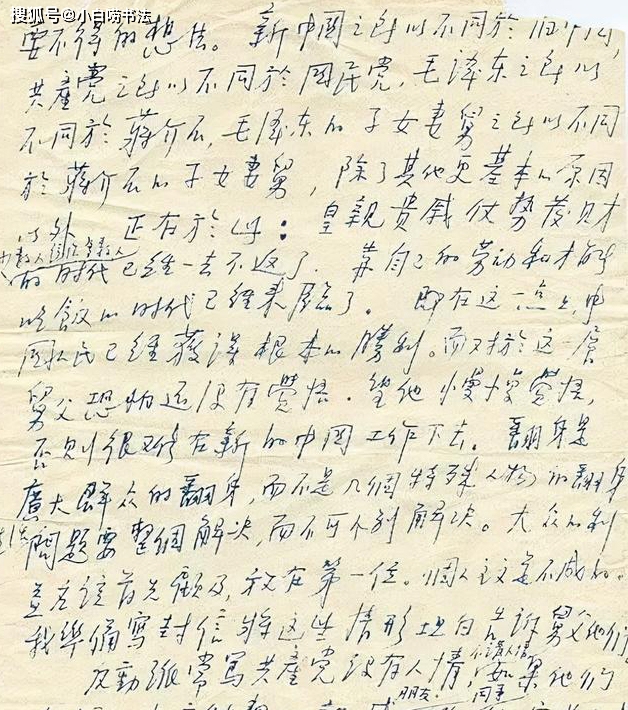 搜狐号@小白唠书法
要不得的想法。新中國之所以不同於旧中国,
共產党之所以不同於国民党,毛泽东之所以
不同於蔣介石,毛泽东的子女妻舅之所以不同
於蔣介石的子女妻舅,除了其他更基本的原因
以外,正在於此:皇親貴戚仗势發财
少数人统治多数人
的时代已經一去不返了。靠自己的劳动和才能
吃飯的时代已經来臨了。即在这一点上,中
国人民已經獲得根本的勝利。而对於这一層
舅父恐怕还没有覺悟。望他慢慢覺悟,
否则很难在新的中国工作下去。翻身是
廣大群众的翻身,而不是几個特殊人物的翻身
問題要整個解决,而不可个别解决。大众的利
益应该首先顧及,放在第一位。個人主义是不成的。
我準備寫封信将这些情形坦白告訴舅父他们。
不講人情
反動派常罵共產党没有人情,如果他们
朋友